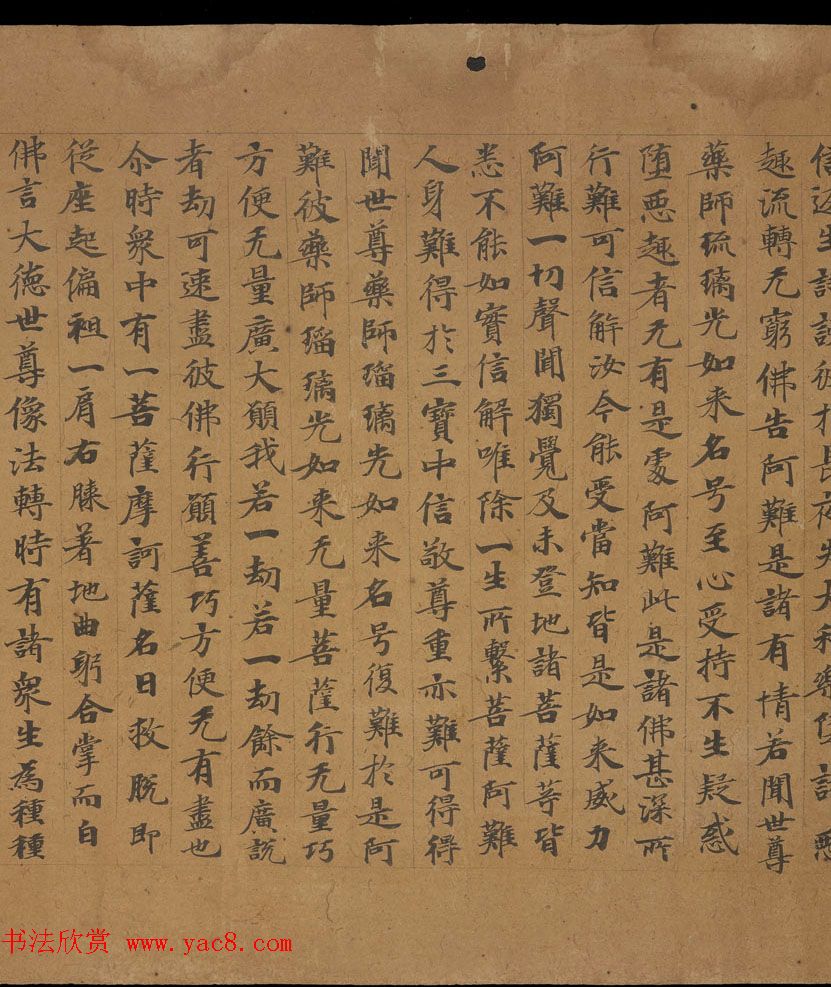 信返生誹謗彼於長夜失大利樂墮諸惡
趣流轉无窮佛告阿難是諸有情若聞世尊
藥師琉璃光如来名号至心受持不生疑惑
墮惡趣者无有是處阿難此是諸佛甚深所
行難可信解汝今能受當知皆是如来威力
阿難一切聲聞獨覺及未登地諸菩薩等皆
悉不能如實信解唯除一生所繫菩薩阿難
人身難得於三寶中信敬尊重亦難可得得
聞世尊藥師瑠璃光如来名号復難於是阿
難彼藥師瑠璃光如来无量菩薩行无量巧
方便无量廣大願我若一劫若一劫餘而廣説
者劫可速盡彼佛行願善巧方便无有盡也
尒時衆中有一菩薩摩訶薩名曰救脱即
從座起偏袒一肩右膝著地曲躬合掌而白
佛言大德世尊像法轉時有諸衆生為種種
书法欣赏 www.yac8.com